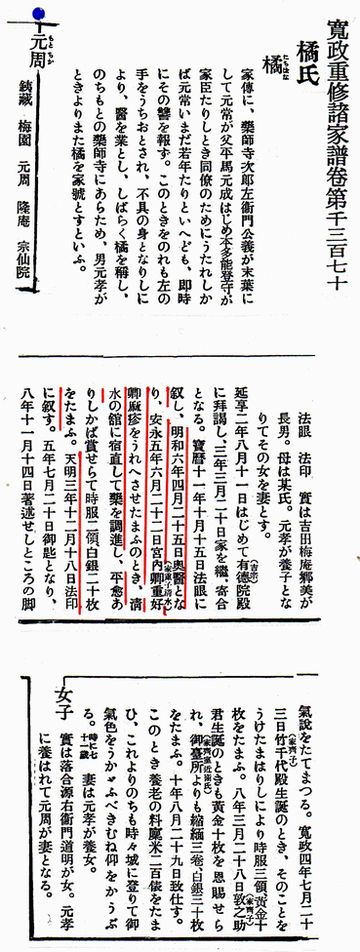 寛政重修諸家譜卷第千三百七十
橘氏
橘
たちはな
家傳に、藥師寺次郎左衞門公義が末葉に
して元常が父平馬元成はじめ本多能登守が
家臣たりしとき同僚のためにうたれしか
ば元常いまだ若年たりといへども、卽時
にその讐を報ず。このときをのれも左の
手をうちおとされ、不具の身となりしに
より、醫を業とし、しばらく橘を稱し、
のちもとの藥師寺にあらため、男元孝が
ときよりまた橘を家號とすといふ。
元周
もとちか
銕藏 梅園 元周 隆庵 宗仙院
法眼 法印 實は吉田梅庵鄕美が
長男。母は某氏。元孝が養子とな
りてその女を妻とす。
延享二年八月十一日はじめて有德院殿
(吉宗)
に拜謁し、三年三月二十日家を繼、寄合
となる。寶曆十一年十月十五日法眼に
叙し、明和六年四月二十五日奥醫とな
り、安永五年六月二十二日宮内卿重好
(家重子清水)
卿麻疹をうれへさせたまふのとき、清
水の舘に宿直して藥を調進し、平愈あ
りしかば賞せられて時服二領白銀二十枚
をたまふ。天明三年十二月十八日法印
に叙す。五年七月二十日御匙となり、
八年十一月十四日著述せしところの脚
氣說をたてまつる。寛政四年七月二十
三日竹千代殿生誕のとき、そのことを
(家齊子)
うけたまはりしにより時服三領、黄金十
枚をたまふ。八年三月二十八日敦之助
(家齊子)
君生誕のときも黄金十枚を恩賜せら
れ、御臺所よりも縮緬三卷、白銀三十枚
(家齊室島津氏)
をたまふ。十年八月二十九日致仕す。
このとき養老の料廩米二百俵をたま
ひ、これよりのちも時々城に登りて御
氣色をうかゞふべきむね仰をかうぶ
る。時に七十一歳 妻は元孝が養女。
女子
實は落合源右衞門道明が女。元孝
に養はれて元周が妻となる。